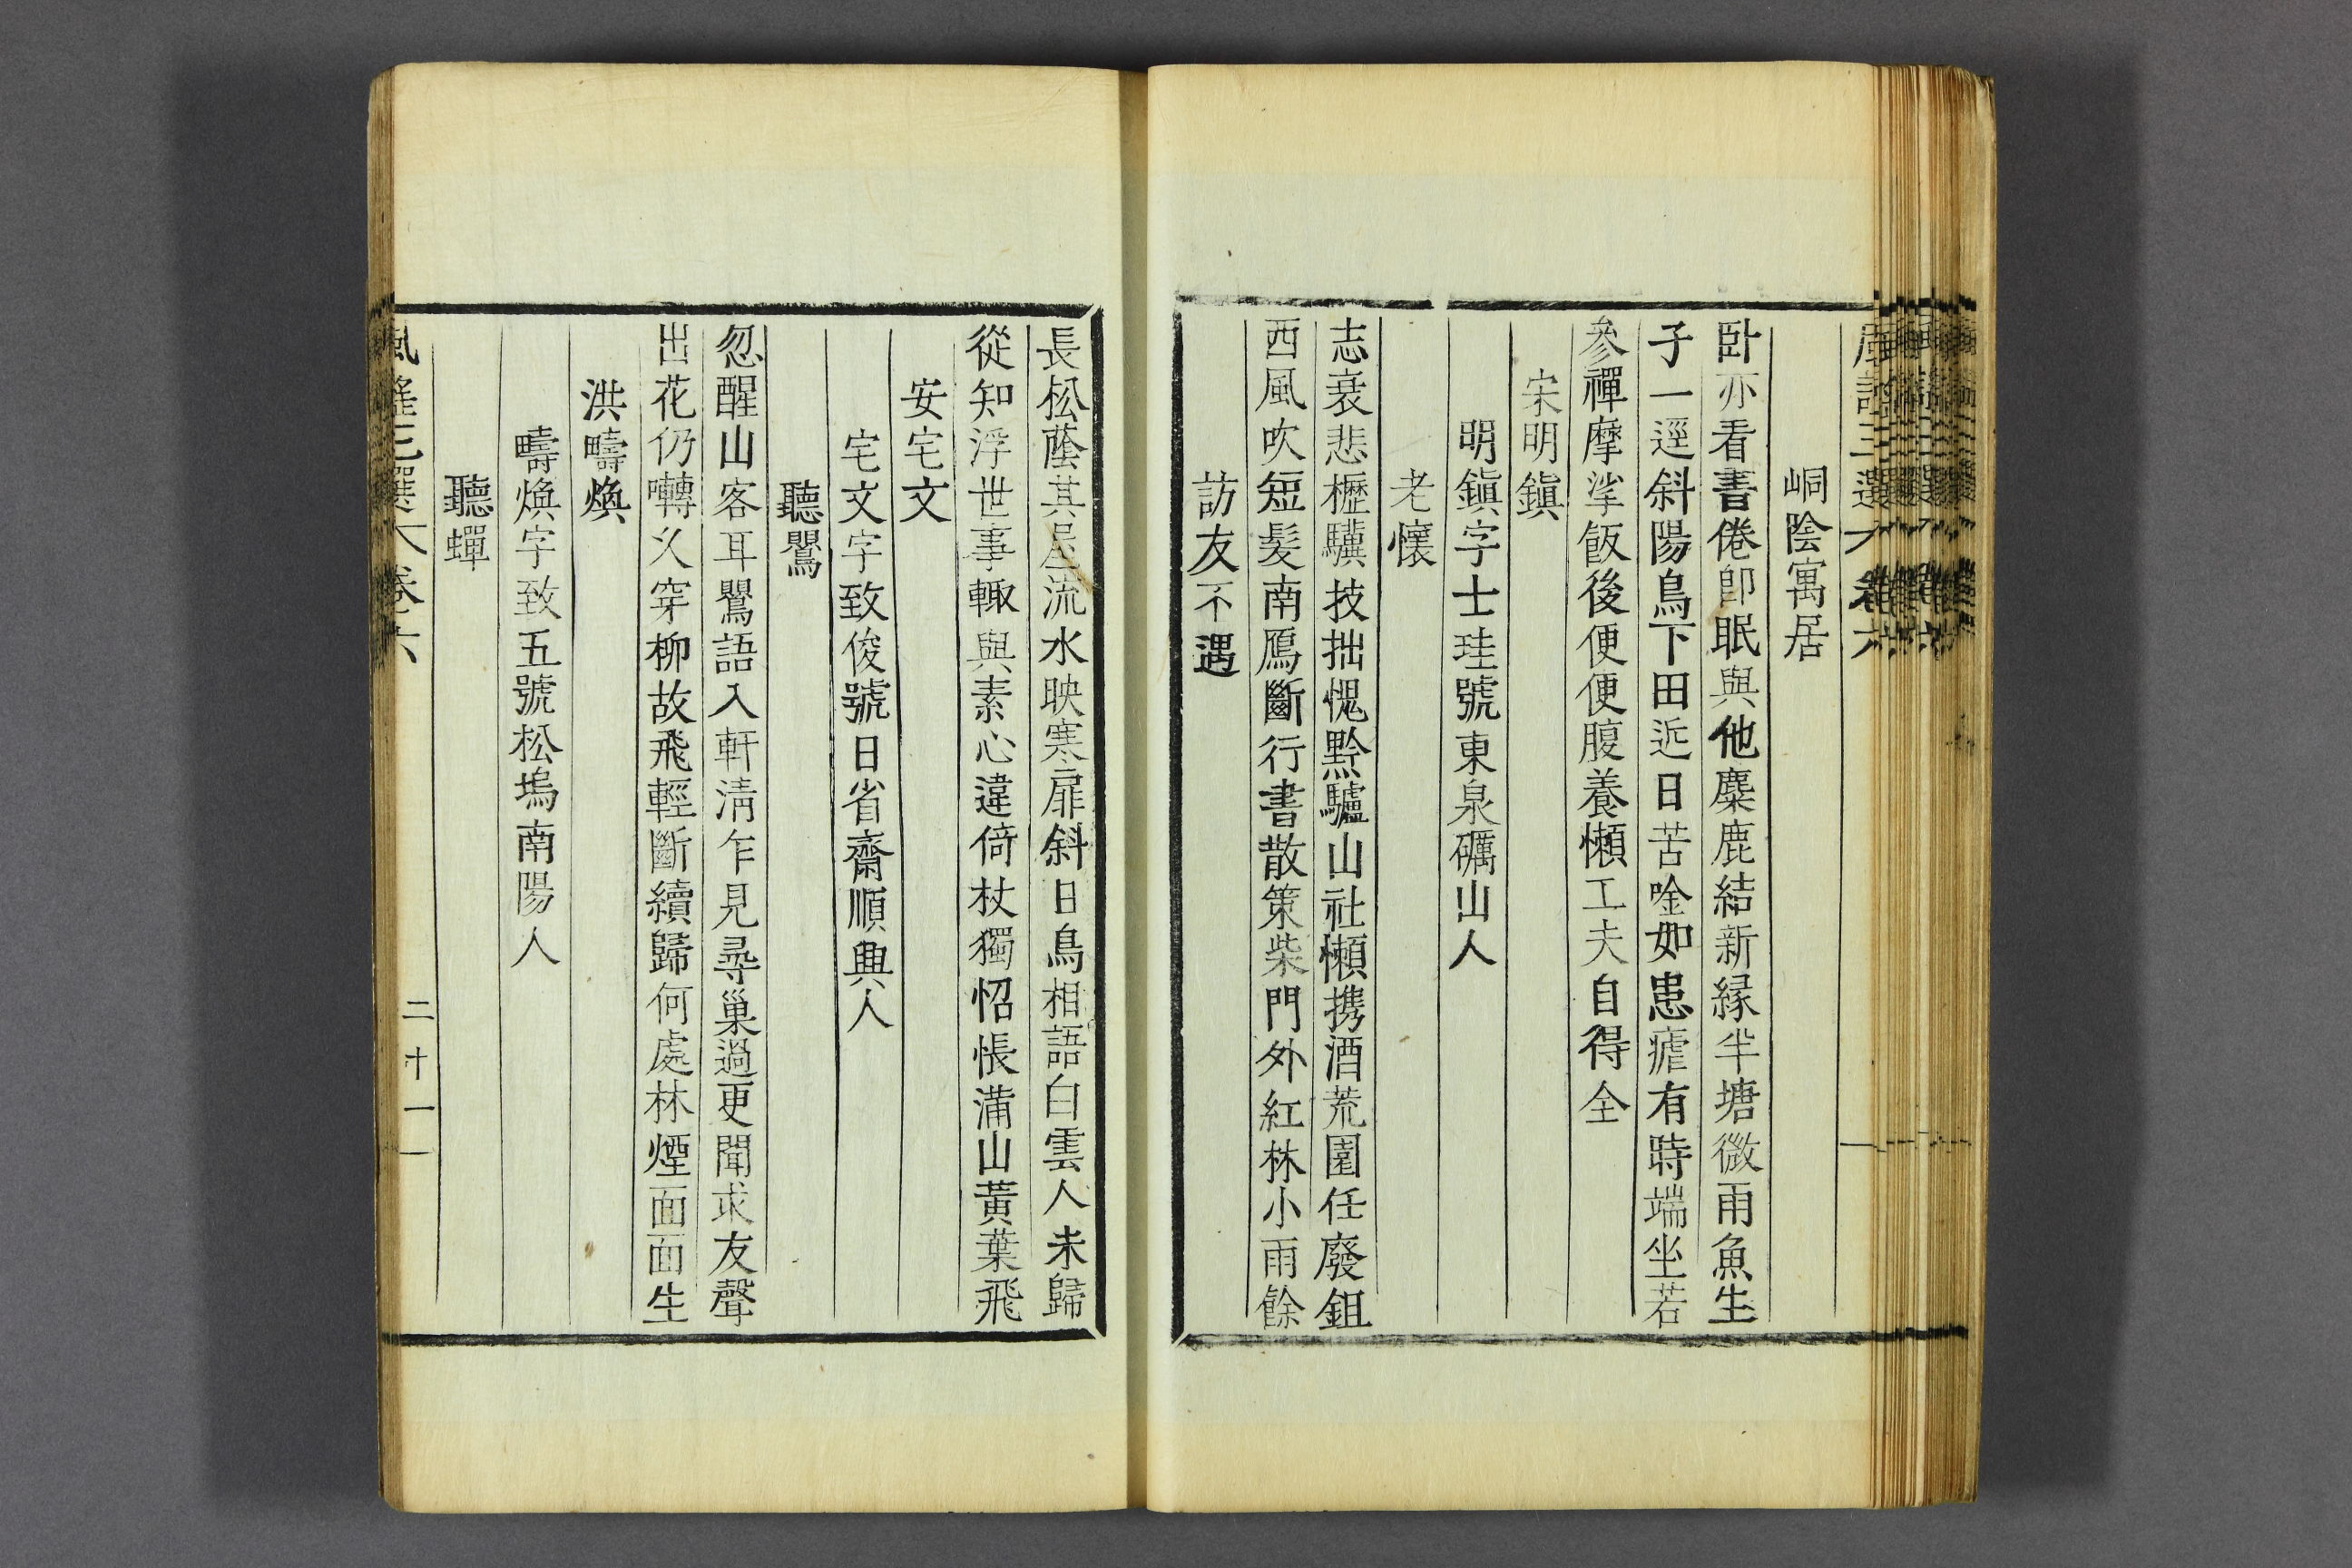 風謠三選 卷六
峒陰寓居
卧亦看書倦卽眠與他麋鹿結新緣半塘微雨魚生
子一逕斜陽鳥下田近日苦唫如患瘧有時端坐若
參禪摩挲飯後便便腹養懶工夫自得全
宋明鎭
明鎭字士珪號東泉礪山人
老懷
志衰悲櫪驥技拙愧黔驢山社懶携酒荒園任廢鉏
西風吹短髮南鴈斷行書散策柴門外紅林小雨餘
訪友不遇
長松蔭其屋流水映寒扉斜日鳥相語白雲人未歸
從知浮世事輙與素心違倚杖獨怊悵滿山黃葉飛
安宅文
宅文字致俊號日省齋順興人
聽鸎
忽醒山客耳鸎語入軒淸乍見尋巢過更聞求友聲
出花仍囀久穿柳故飛輕斷續歸何處林煙面面生
洪疇煥
疇煥字致五號松塢南陽人
聽蟬
風謠三選 卷六
二十一